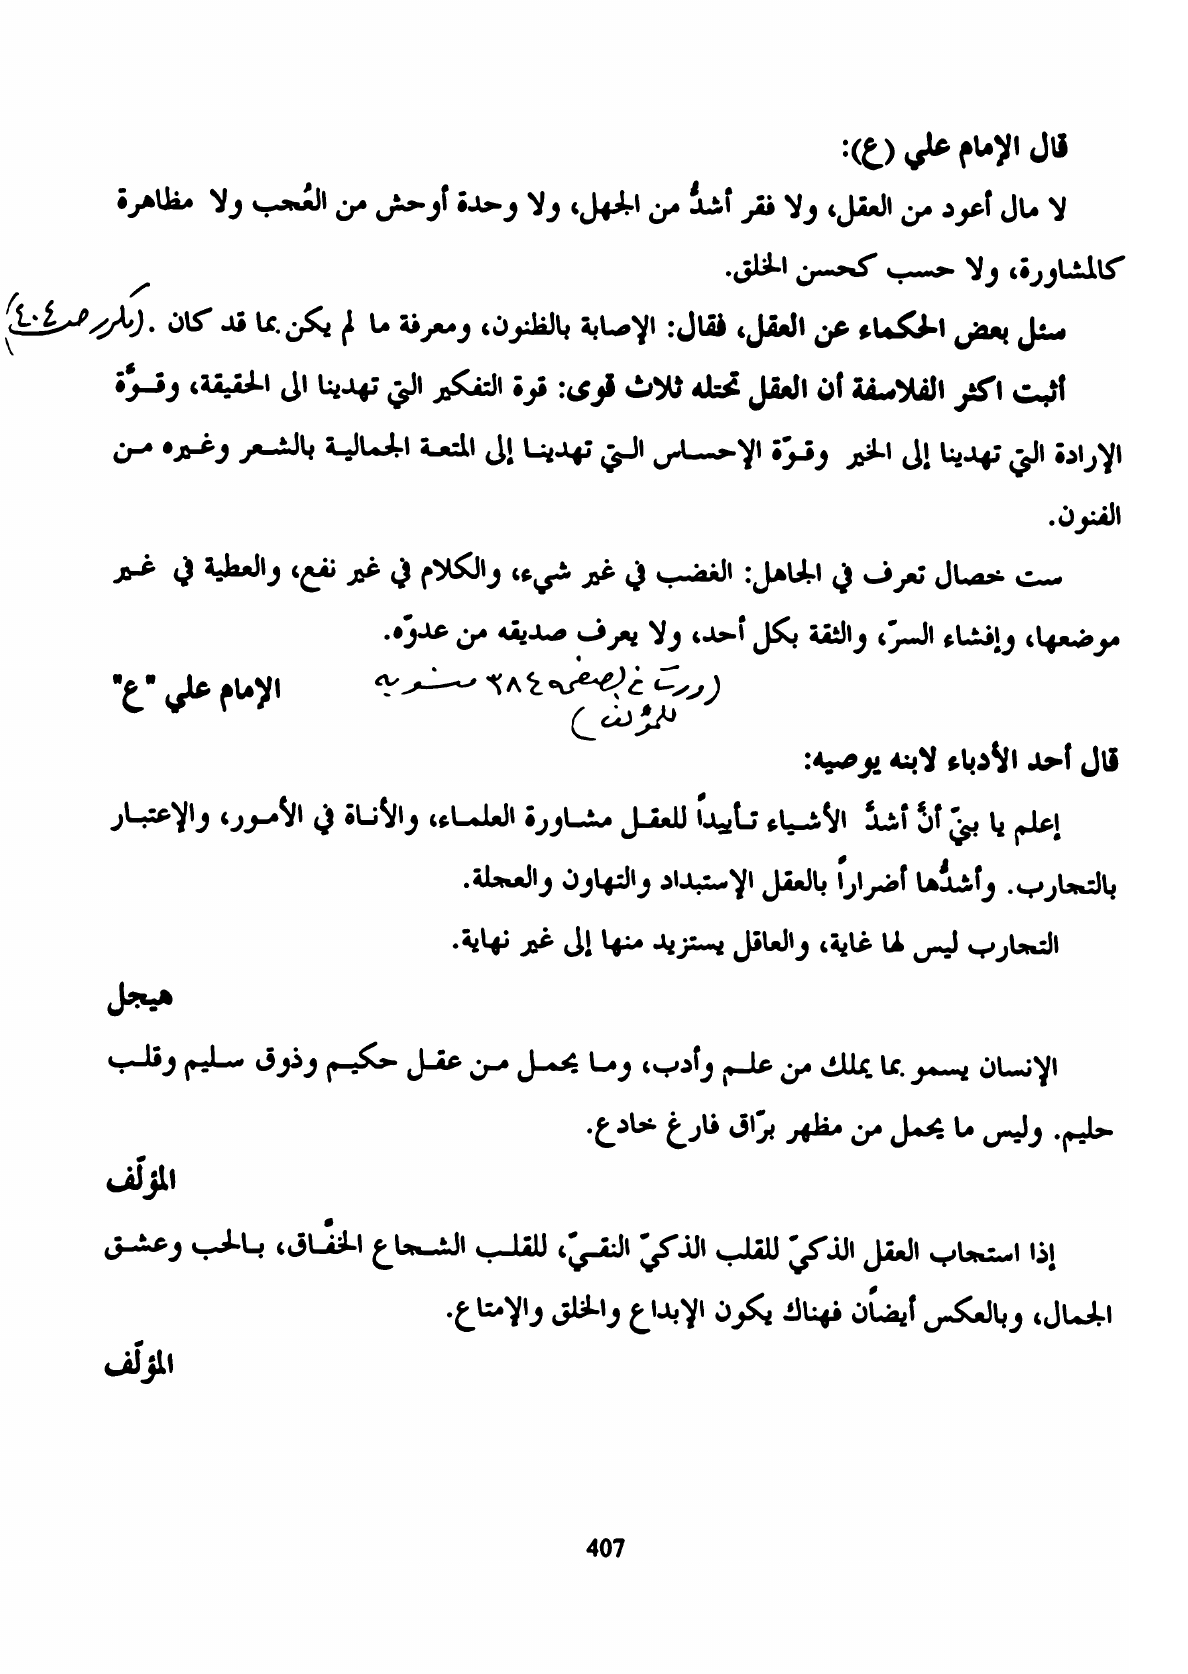 قال الإمام علي (ع):
لا مال أعود من العقل، ولا فقر أشدُّ من الجهل، ولا وحدة أوحش من العُجب ولا مظاهرة
كالمشاورة، ولا حسب كحسن الخلق.
سئل بعض الحكماء عن العقل، فقال: الإصابة بالظنون، ومعرفة ما لم يكن بما قد كان . (مكرر ص ٤٠٤)
أثبت اكثر الفلاسفة أن العقل تحتله ثلاث قوى: قوة التفكير التي تهدينا الى الحقيقة، وقوَّة
الإرادة التي تهدينا إلى الخير وقوّة الإحساس التي تهدينا إلى المتعة الجمالية بالشعر وغيره من
الفنون.
ست خصال تعرف في الجاهل: الغضب في غير شيء، والكلام في غير نفع، والعطية في غير
موضعها، وإفشاء السرّ، والثقة بكل أحد، ولا يعرف صديقه من عدوّه.
(وردت في الصفحة ٣٨٤ منسوبة
الإمام علي "ع"
للمؤلف)
قال أحد الأدباء لابنه يوصيه:
إعلم يا بنيّ أنَّ أشدَّ الأشياء تأييداً للعقل مشاورة العلماء، والأناة في الأمور، والإعتبار
بالتجارب. وأشدُّها أضراراً بالعقل الإستبداد والتهاون والعجلة.
التجارب ليس لها غاية، والعاقل يستزيد منها إلى غير نهاية.
هيجل
الإنسان يسمو بما يملك من علم وأدب، وما يحمل من عقل حكيم وذوق سليم وقلب
حليم. وليس ما يحمل من مظهر برّاق فارغ خادع.
المؤلّف
إذا استجاب العقل الذكيّ للقلب الذكيّ النقيّ، للقلب الشجاع الخفَّاق، بالحب وعشق
الجمال، وبالعكس أيضاًن فهناك يكون الإبداع والخلق والإمتاع.
المؤلّف
407